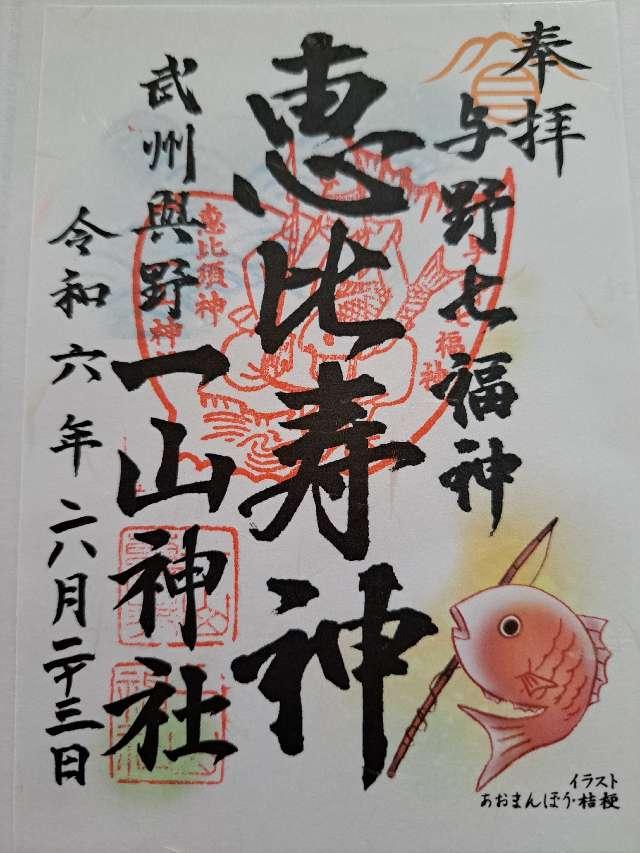 奉拝
与野七福神
恵比寿神
恵比須神
武州與野
一山神社
令和六年六月二十三日
イラスト
あおまんぼう・桔梗